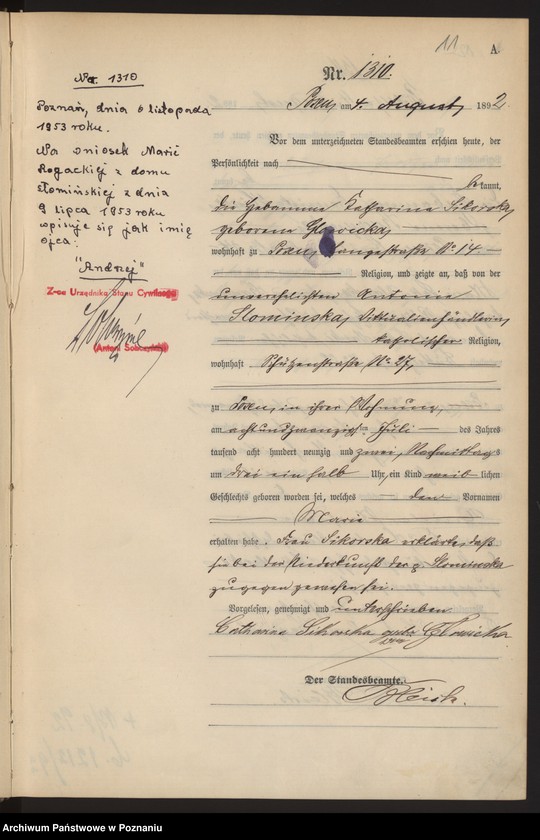 11
A
No. 1310
Poznań, dnia 6 listopada
1953 roku.
Na wniosek Marii
Rogackiej z domu
Słomińskiej z dnia
9 lipca 1953 roku
wpisuje się jak imię
ojca:
"Andrzej"
Z-ca Urzędnika Stanu Cywilnego
(Antoni Sobczyński)
Nr. 1310.
Posen, am 4. August, 1892.
Vor dem unterzeichneten Standesbeamten erschien heute, der
Persönlichkeit nach
bekannt,
die Hebamme Katharina Sikorska,
geborene Glowicka,
wohnhaft zu Posen, Langestraße No 14.
Religion, und zeigte an, daß von der
unverehelichten Antonie
Slominska, Victualienhändlerin,
katholischer Religion,
wohnhaft Schützenstraße No 27,
zu Posen, in ihrer Wohnung,
am achtundzwanzigsten Juli des Jahres
tausend acht hundert neunzig und zwei, Nachmittags
um drei ein halb Uhr, ein Kind weiblichen
Geschlechts geboren worden sei, welches den Vornamen
Marie
erhalten habe. Frau Sikorska erklärte, daß
sie bei der Niederkunft der p. Slominska
zugegen gewesen sei.
Vorgelesen, genehmigt und unterschrieben
Catharina Sikorska geb. Glowicka
Der Standesbeamte.
Archiwum Państwowe w Poznaniu